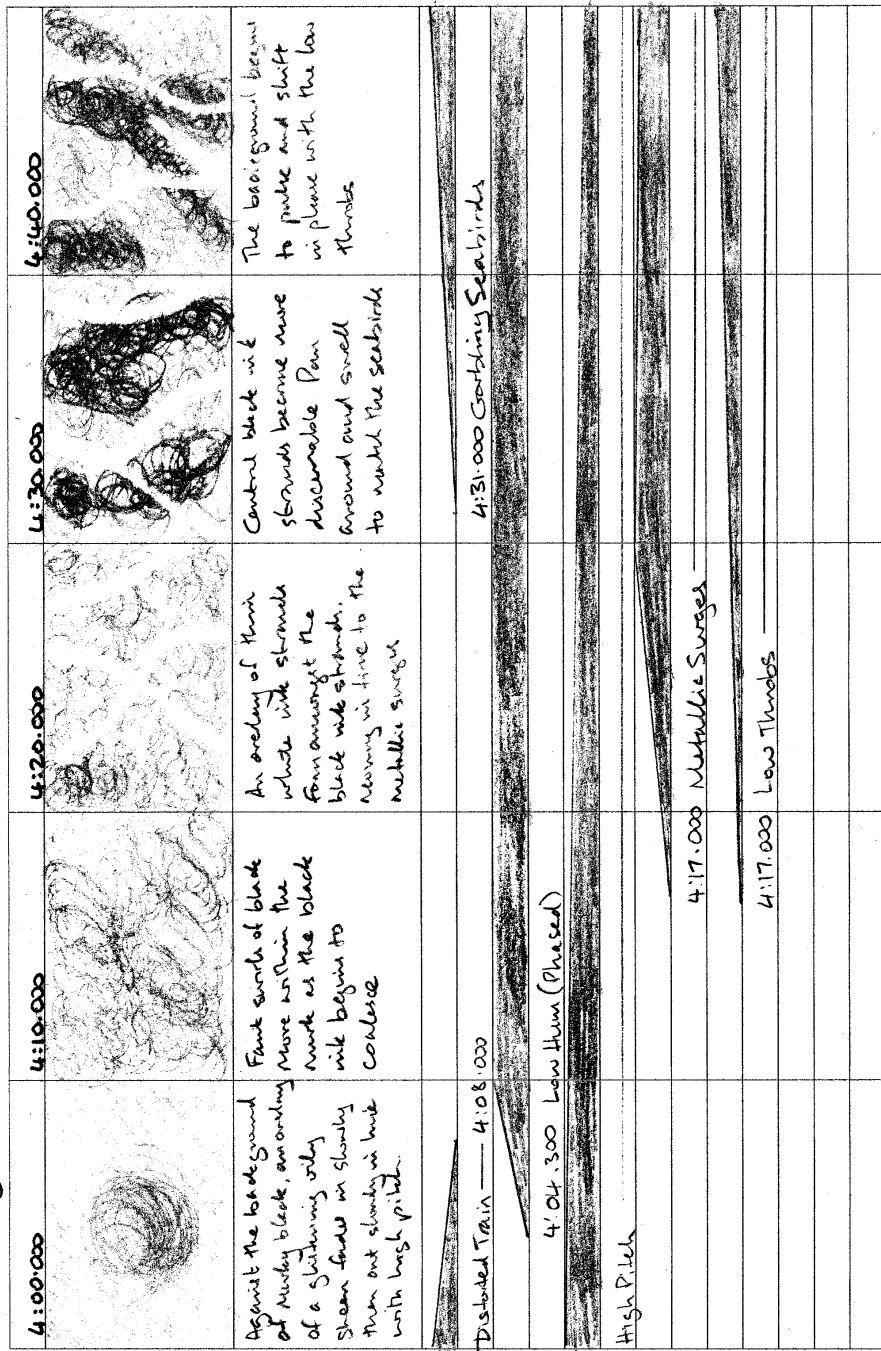 4:00.000
4:10.000
4:20.000
4:30.000
4:40.000
Against the background
of murky black, an overlay
of a glistening oily
sheen fades in slowly
then out slowly in line
with high pitch.
Faint swirls of black
move within the
murk as the black
ink begins to
coalesce
An overlay of thin
white ink strands
form amongst the
black ink strands.
Moving in time to the
metallic surges
Central black ink
strands become more
discernable Pan
around and swell
to match the seabirds
The background begins
to pulse and shift
in phase with the low
throbs
Distorted Train — 4:08.000
4:31.000 Garbling Seabirds
4'04.300 Low Hum (Phased)
High Pitch
4:17.000 Metallic Surges
4:17.000 Low Throbs